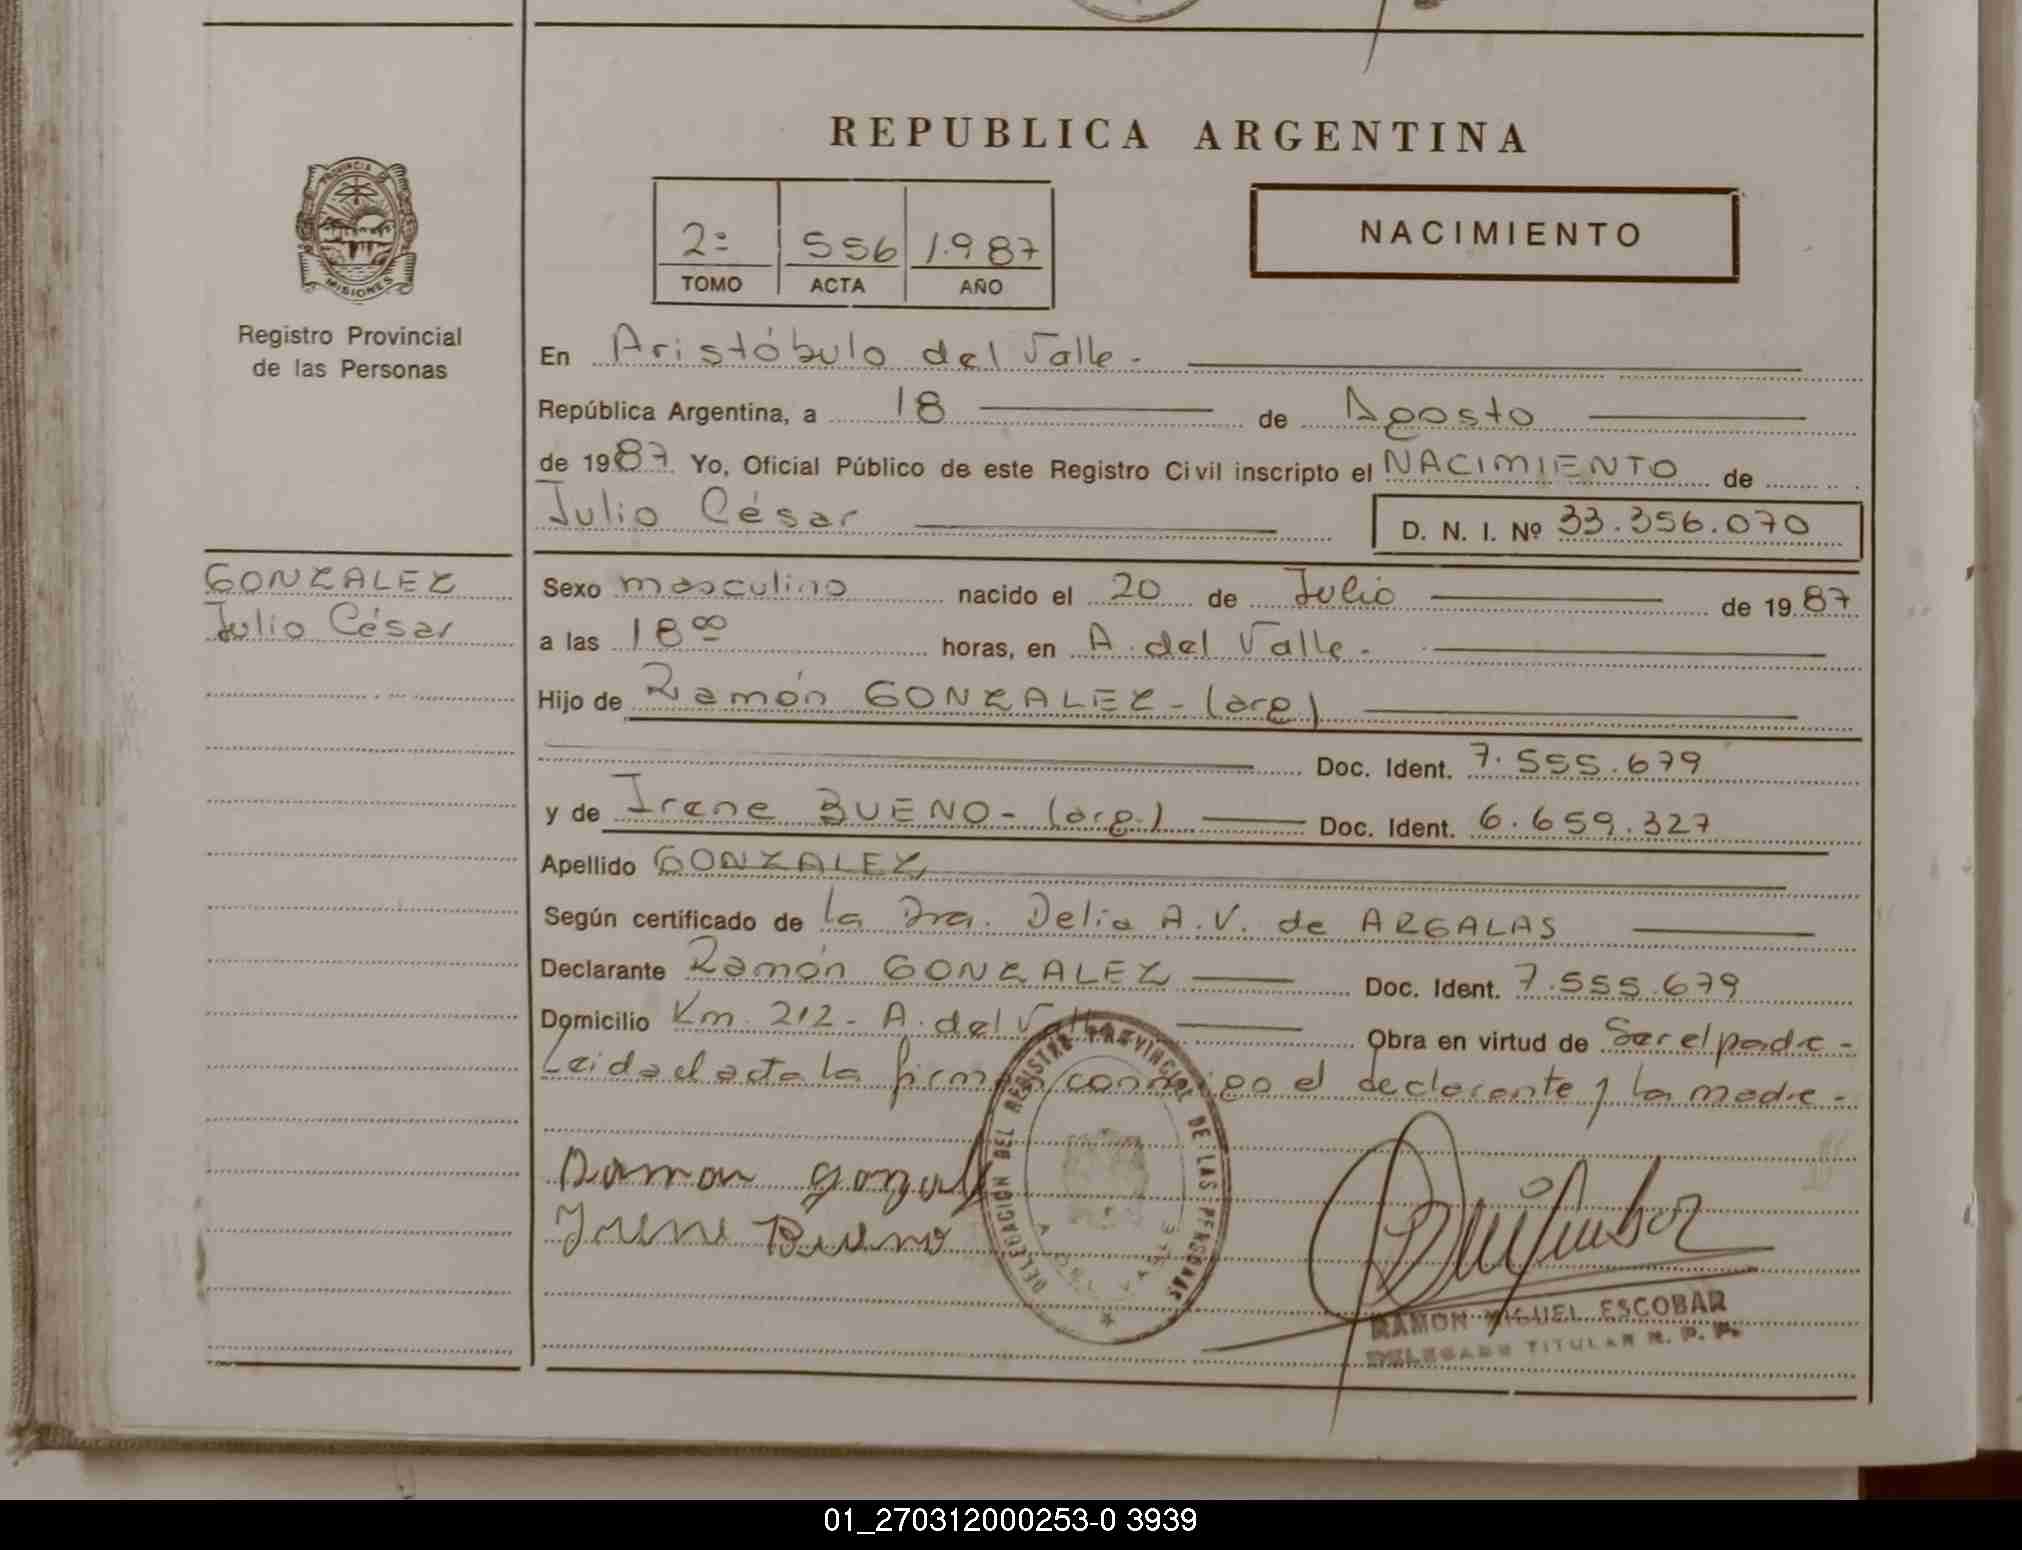 REPUBLICA ARGENTINA
PROVINCIA DE
MISIONES
Registro Provincial
de las Personas
2º 556 1.987
TOMO ACTA AÑO
NACIMIENTO
En Aristóbulo del Valle.
República Argentina, a 18 de Agosto
de 1987. Yo, Oficial Público de este Registro Civil inscripto el NACIMIENTO de
Julio César D. N. I. Nº 33.356.070
GONZALEZ
Julio César
Sexo masculino nacido el 20 de Julio de 1987
a las 18 00 horas, en A. del Valle.
Hijo de Ramón GONZALEZ - (arg)
Doc. Ident. 7.555.679
y de Irene BUENO - (arg.) Doc. Ident. 6.659.327
Apellido GONZALEZ
Según certificado de la Dra. Delia A.V. de ARGALAS
Declarante Ramón GONZALEZ Doc. Ident. 7.555.679
Domicilio Km. 212 - A. del Valle Obra en virtud de Ser el padre -
Leida el acta la firman conmigo el declarante y la madre -
DELEGACION DEL REGISTRO PROVINCIAL DE LAS PERSONAS
A. DEL VALLE
Ramon Gonzal
Irene Bueno
RAMON MIGUEL ESCOBAR
DELEGADO TITULAR R. P. P.
01_270312000253-0 3939